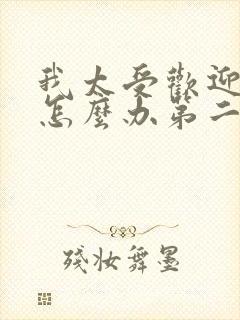 我太受歡迎
怎麼办第二
殘妆舞墨